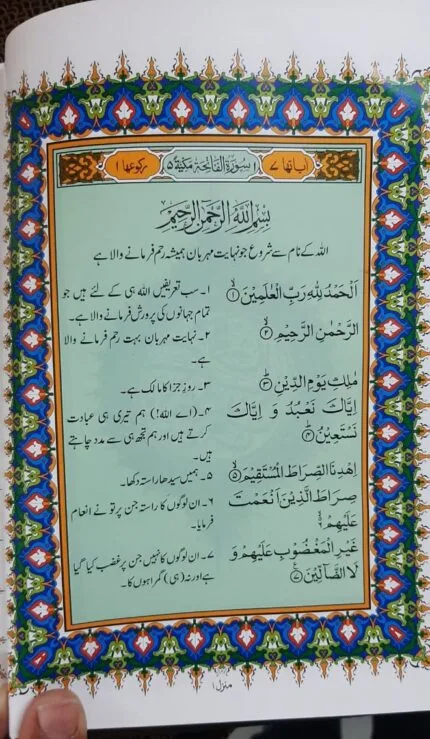 اٰیاتھا ۷
۱ سُوْرَۃُ الْفَاتِحَۃِ مَکِّیَّۃٌ ۵
رکوعھا ۱
بِسْمِ اللّٰہِ الرَّحْمٰنِ الرَّحِیْمِ
اللہ کے نام سے شروع جو نہایت مہربان ہمیشہ رحم فرمانے والا ہے
اَلْحَمْدُ لِلّٰہِ رَبِّ الْعٰلَمِیْنَ ۱
الرَّحْمٰنِ الرَّحِیْمِ ۲
مٰلِکِ یَوْمِ الدِّیْنِ ۳
اِیَّاکَ نَعْبُدُ وَ اِیَّاکَ
نَسْتَعِیْنُ ۴
اِھْدِنَا الصِّرَاطَ الْمُسْتَقِیْمَ ۵
صِرَاطَ الَّذِیْنَ اَنْعَمْتَ
عَلَیْھِمْ ۶
غَیْرِ الْمَغْضُوْبِ عَلَیْھِمْ وَ
لَا الضَّآلِّیْنَ ۷
۱۔ سب تعریفیں اللہ ہی کے لئے ہیں جو
تمام جہانوں کی پرورش فرمانے والا ہے۔
۲۔ نہایت مہربان بہت رحم فرمانے والا
ہے۔
۳۔ روزِ جزا کا مالک ہے۔
۴۔ (اے اللہ!) ہم تیری ہی عبادت
کرتے ہیں اور ہم تجھ ہی سے مدد چاہتے
ہیں۔
۵۔ ہمیں سیدھا راستہ دکھا۔
۶۔ ان لوگوں کا راستہ جن پر تو نے انعام
فرمایا۔
۷۔ ان لوگوں کا نہیں جن پر غضب کیا گیا
ہے اور نہ (ہی) گمراہوں کا۔
منزل ۱